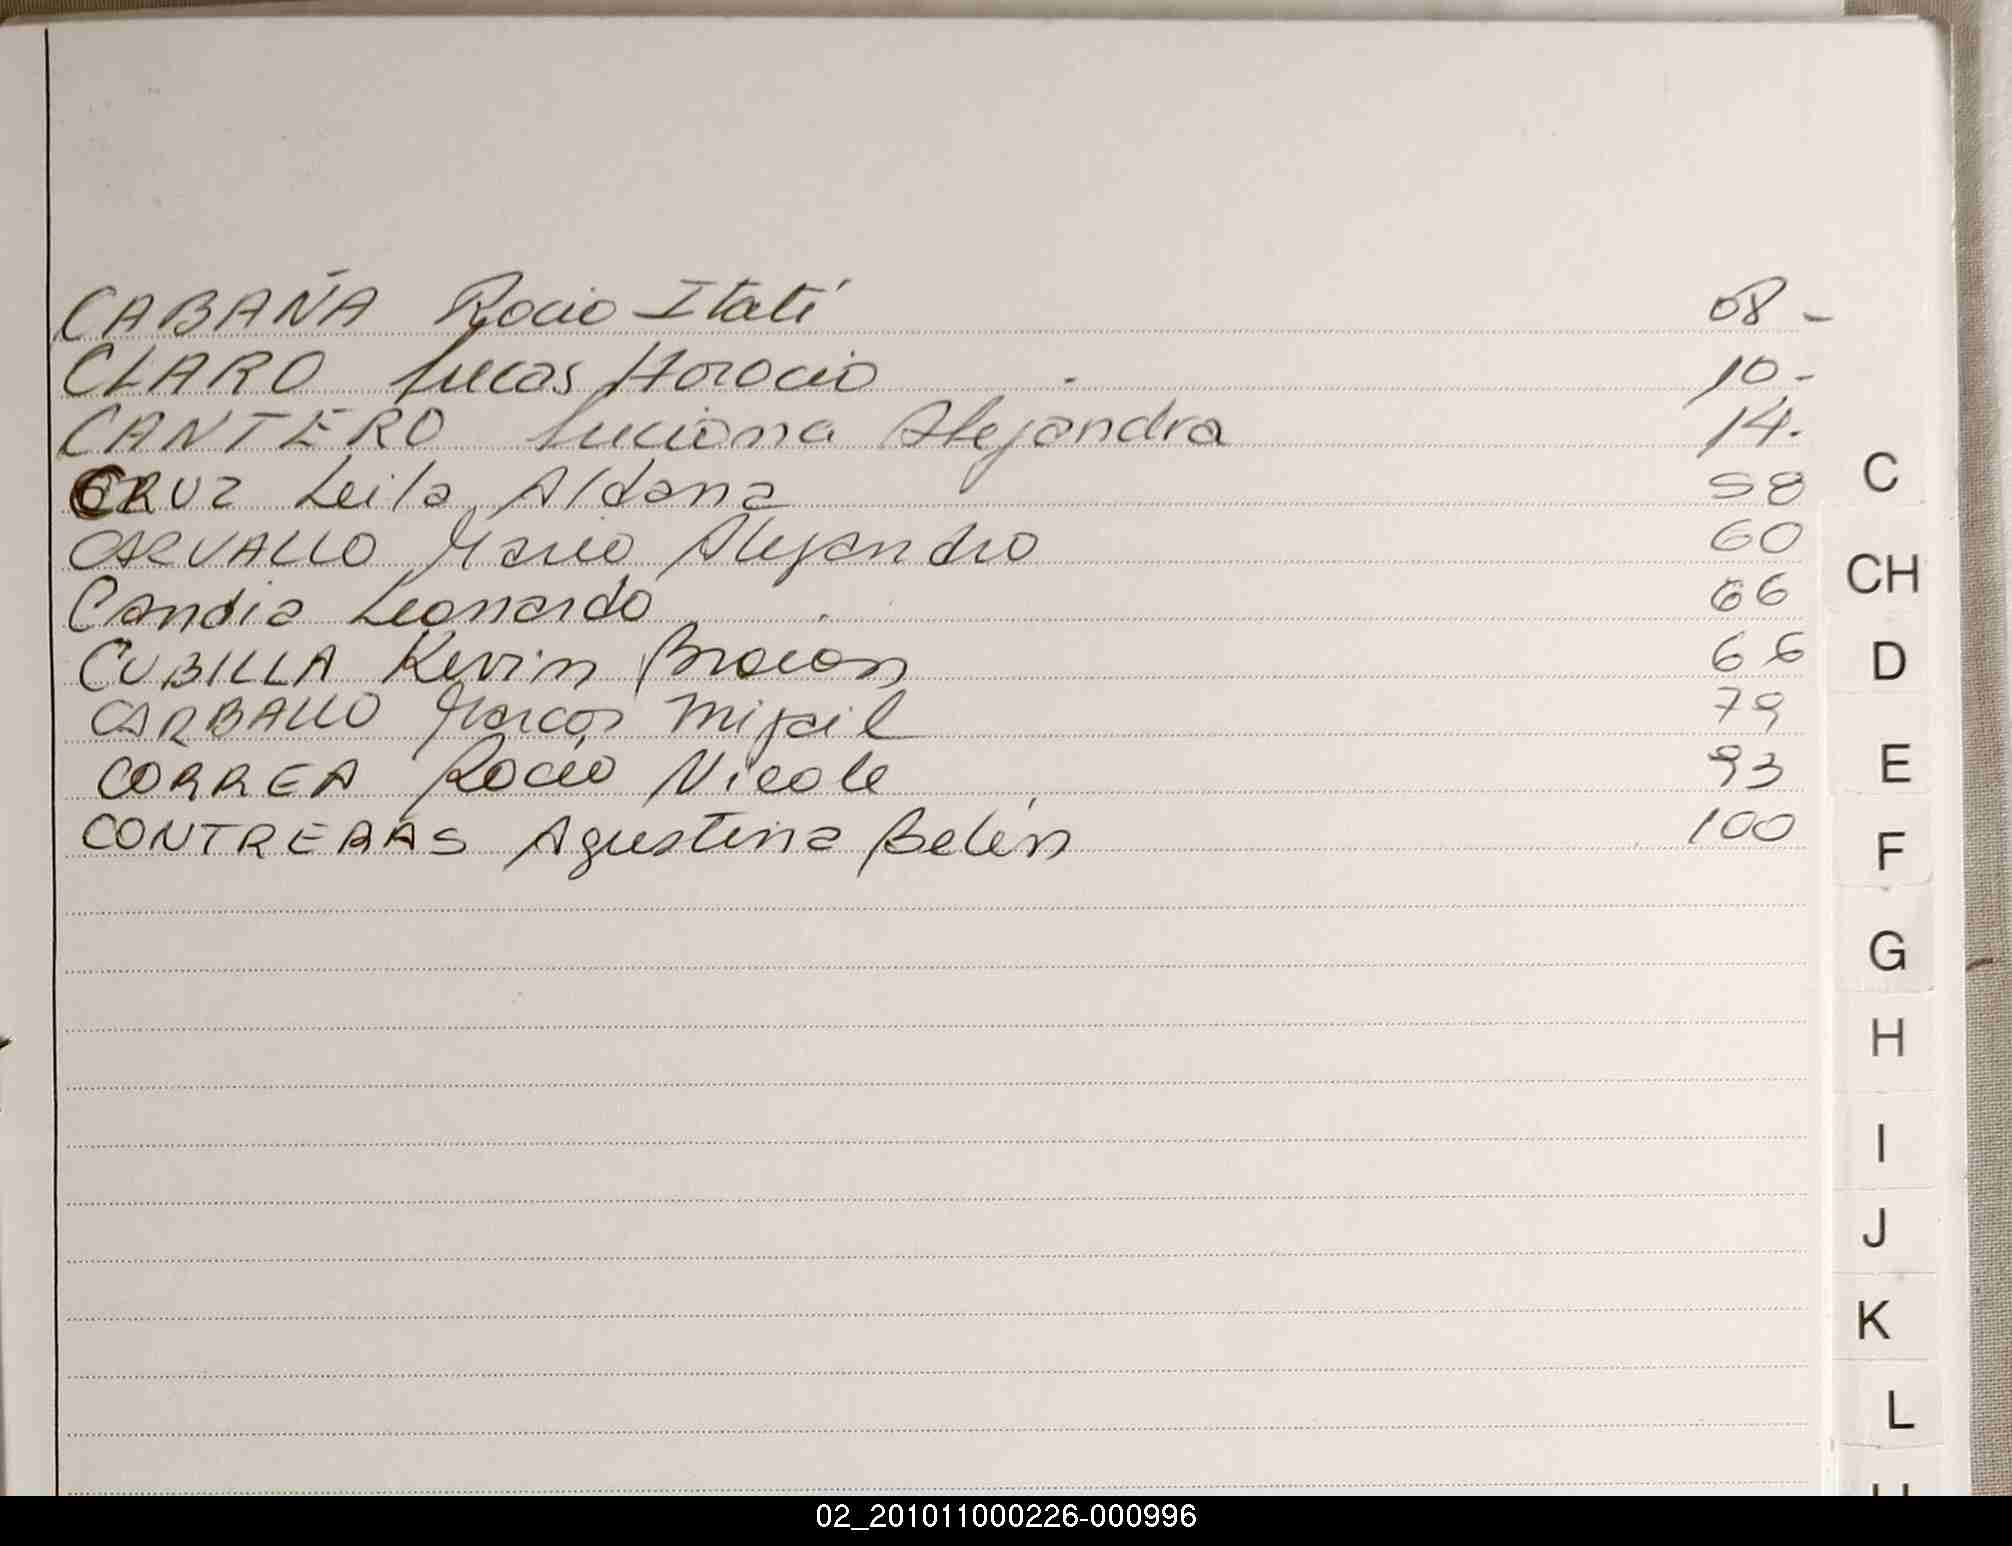 CABAÑA Rocio Itatí 08 -
CLARO Lucas Horacio 10 -
CANTERO Luciana Alejandra 14.
CRUZ Leila Aldana 58
CARVALLO Mario Alejandro 60
Candia Leonardo 66
CUBILLA Kevin Braian 66
CARBALLO Marcos 79
CORREA Rocío Nicole 93
CONTRERAS Agustina Belén 100
C
CH
D
E
F
G
H
I
J
K
L
02_201011000226-000996